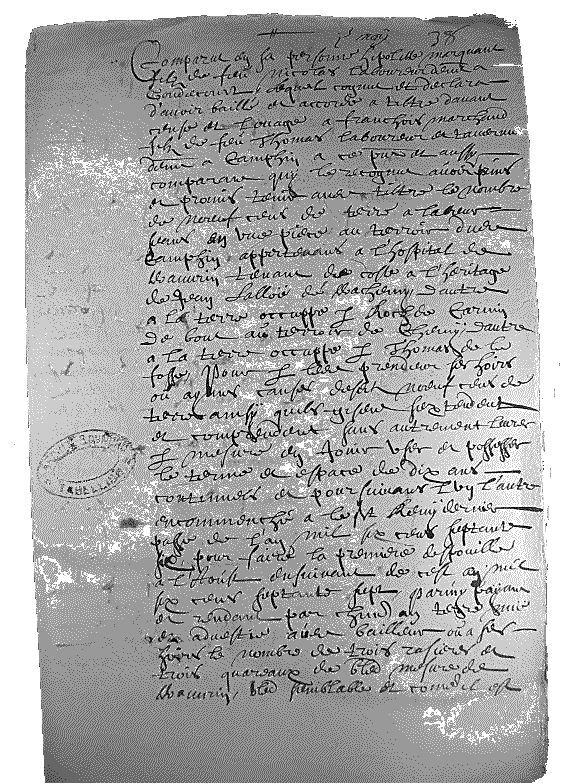 38
Comparut en sa personne hipolitte marquant
fils de feu Nicolas laboureur dem.t a
Gondecourt, lequel cognut et declara
d'avoir baillé et accordé a tiltre davant
cense et louage a franchois marchand
fils de feu Thomas laboureur et tavernier
dem.t a Camphin a ce pnt et aussy
comparant quy le recognut avoir prins
et promis tenir audt tiltre le nombre
de noeuf cens de terre a labeur
gisans en une piece au terroir dudt
Camphin, appertenans a l'hospital de
Wauvrin tenant de coste a l'heritage
de Jean Lallou de d'autre
a la terre occuppe p Roch de Carvin
de bout au terroir de d'autre
a la terre occuppe p Thomas de le
fosse, Pour p ledt prendeur ses hoirs
ou ayans cause desdt noeuf cens de
terre ainsy quils gisent sextendent
et comprendent sans autrement livrer
p mesure en jouir user et possesser
le terme et espace de dix ans
continuels et poursuivans l'un l'autre
encommenché a le st Remy dernier
passé de l'an mil six cens septante
six pour faire la premiere despouille
a l'Aoust ensuivant de cest an mil
six cens septante sept Parmy payant
et rendant par chun an
audt bailleur ou a ses
hoirs le nombre de trois rasieres et
trois quareaux de bled mesure de
Wauvrin, bled semblable et comeil est